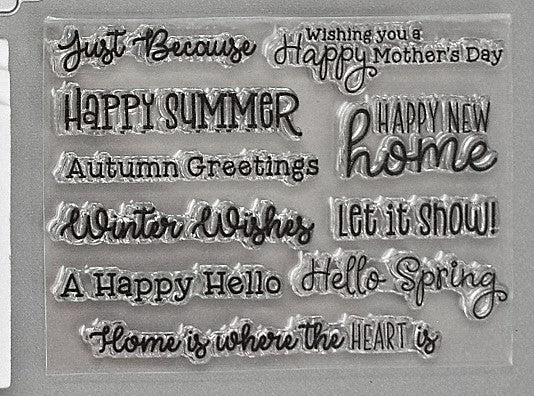 Just Because
Wishing you a
Happy Mother's Day
Happy Summer
Happy New
home
Autumn Greetings
Winter Wishes
Let it Snow!
A Happy Hello
Hello Spring
Home is where the HEART is